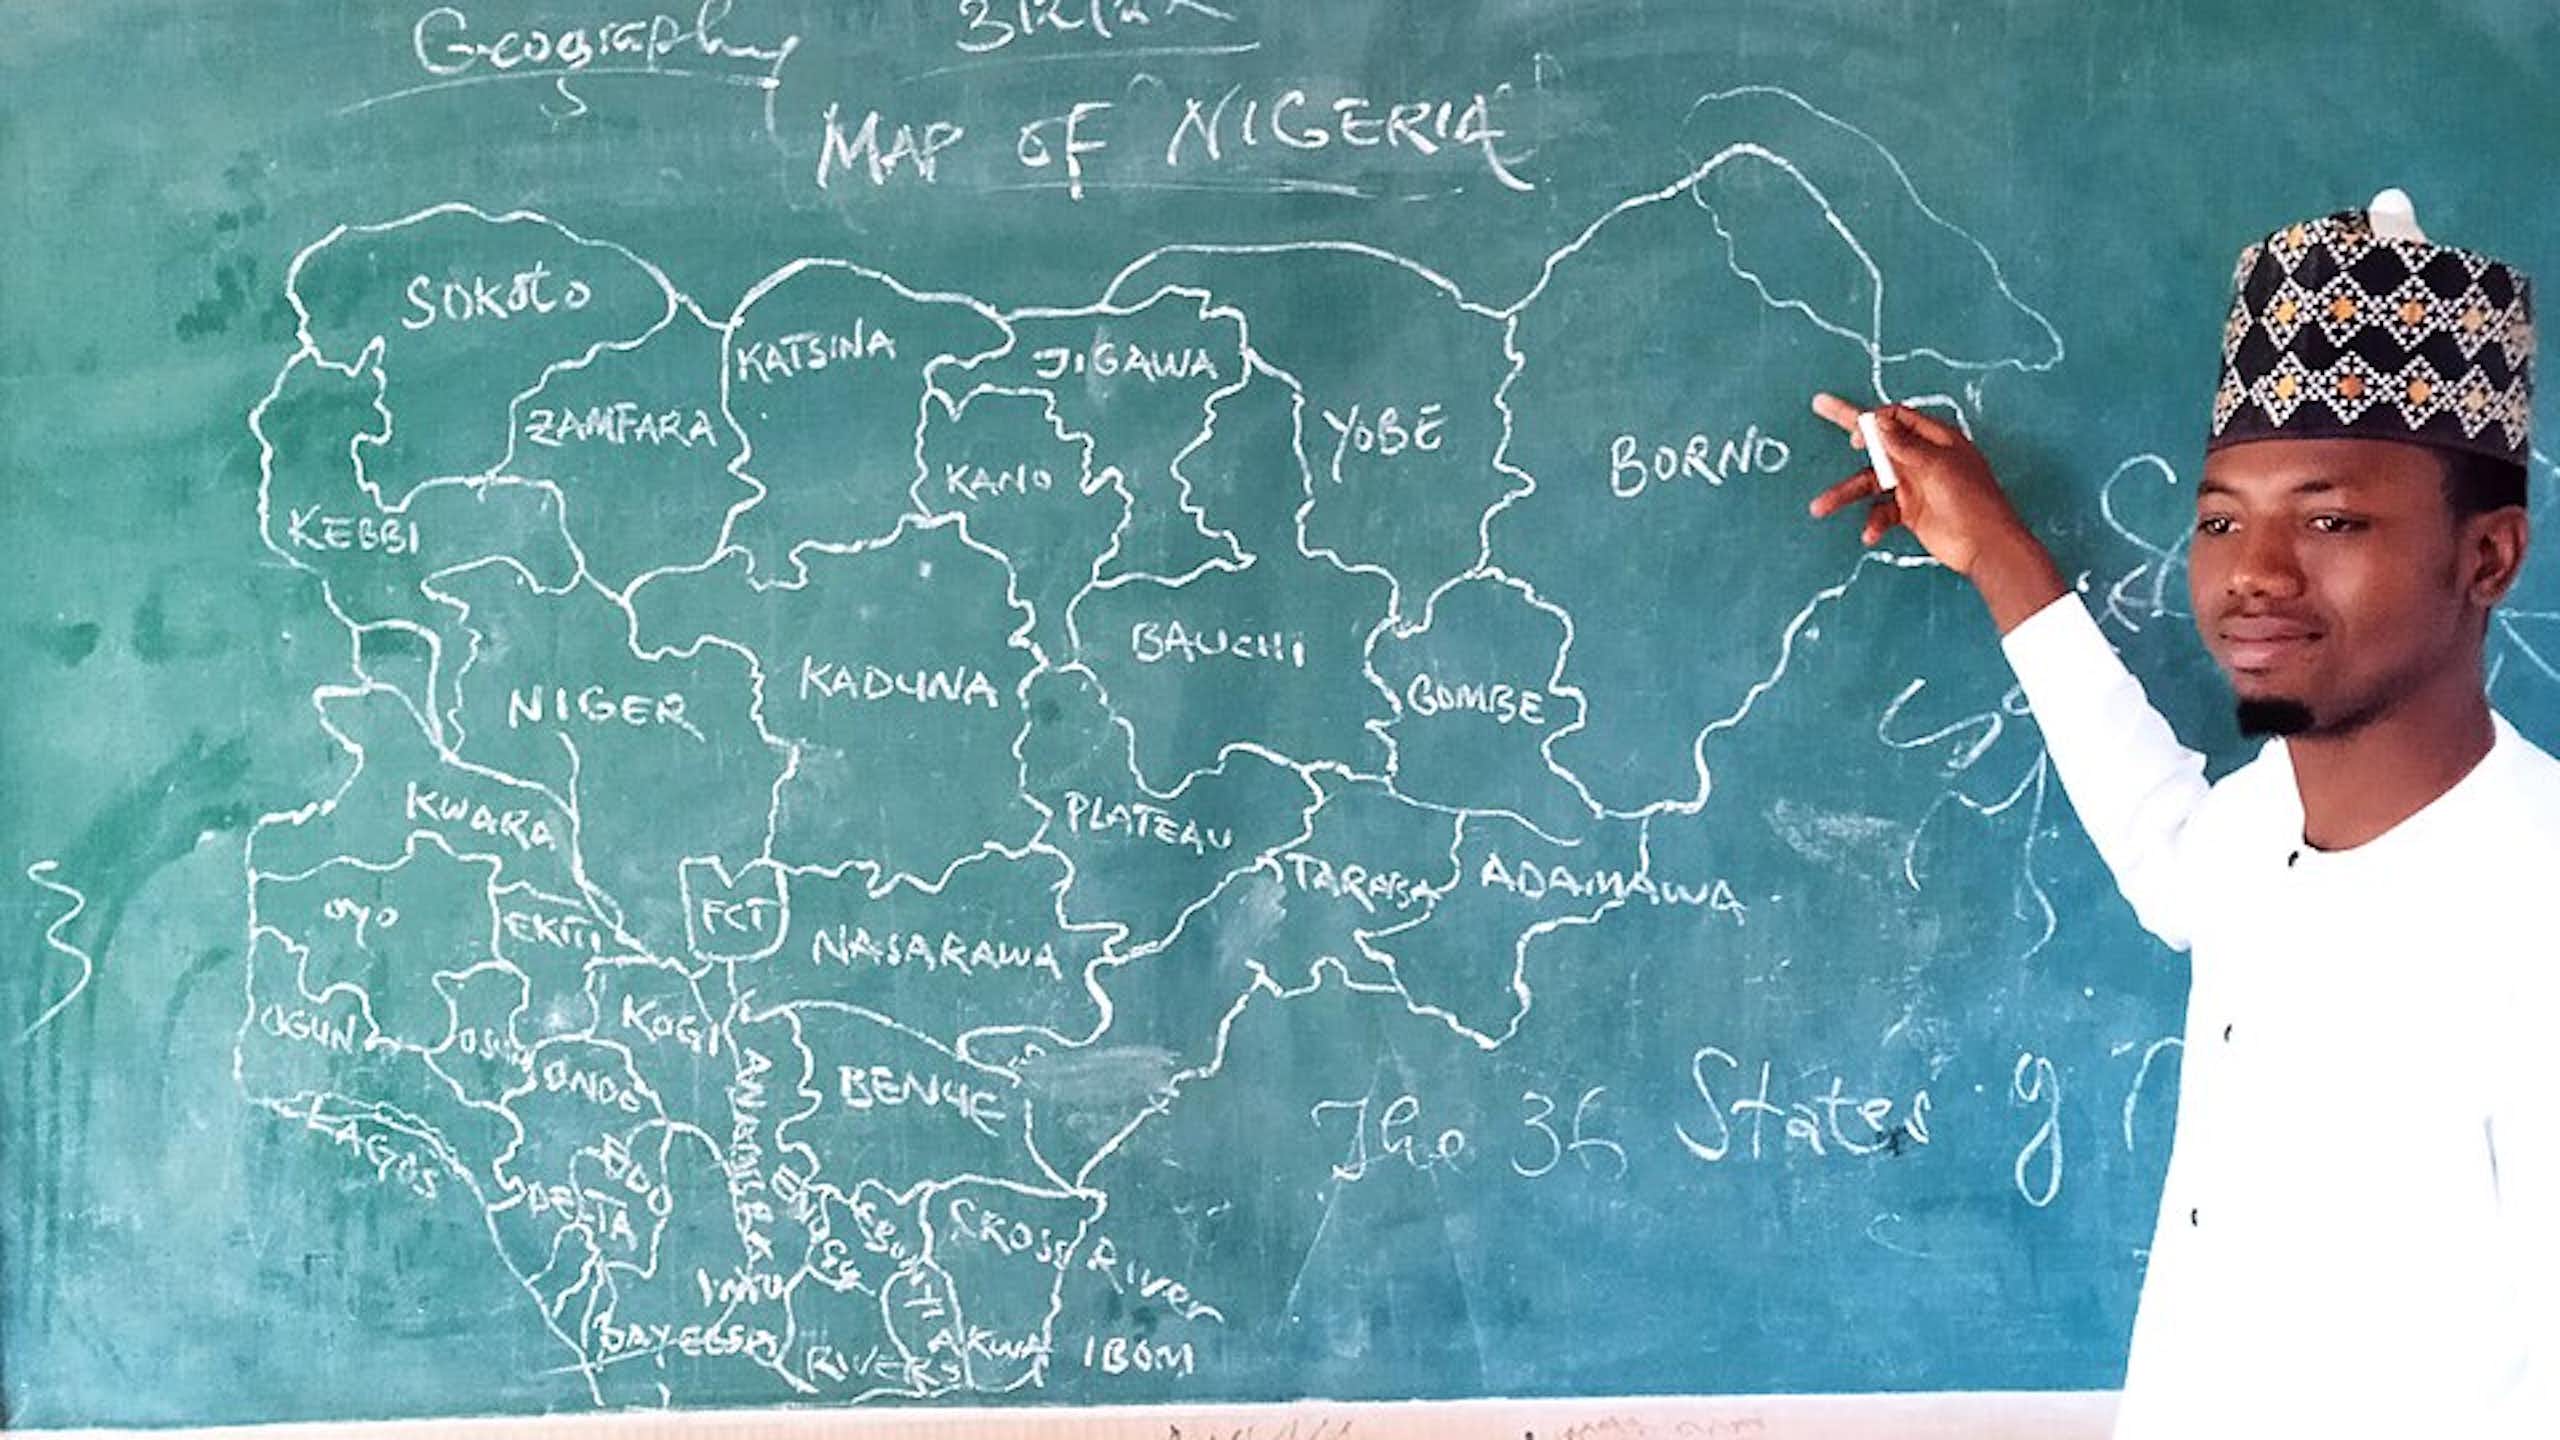 Geography
MAP OF "NIGERIA"
SOKOTO
KATSINA
JIGAWA
ZAMFARA
YOBE
BORNO
KANO
KEBBI
BAUCHI
KADUNA
NIGER
GOMBE
KWARA
PLATEAU
TARABA
ADAMAWA
OYO
EKITI
FCT
NASARAWA
OGUN
OSUN
KOGI
ONDO
BENUE
ANAMBRA
The 36 States of
LAGOS
EDO
DELTA
CROSS RIVER
IMO
BAYELSA
RIVERS
AKWA IBOM